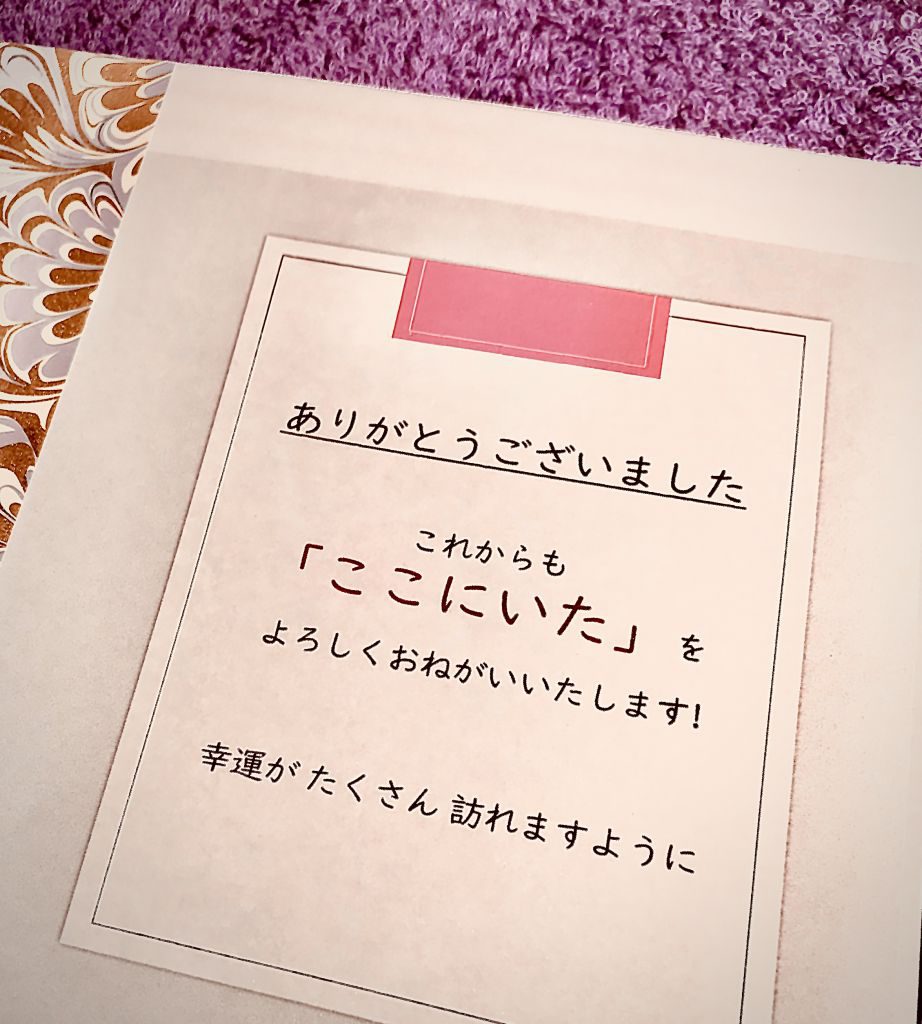 ありがとうございました
これからも
「ここにいた」を
よろしくおねがいいたします!
幸運が たくさん 訪れますように